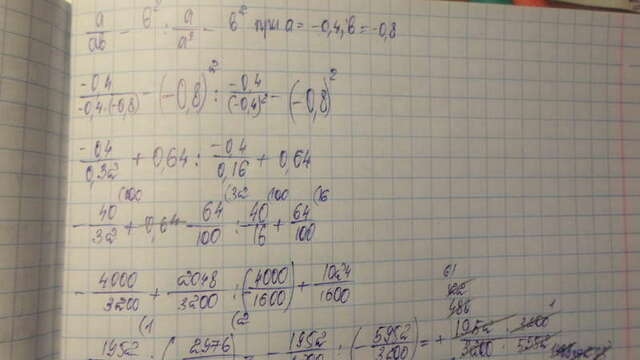 a/ab - b² : a/a² - b² при a = -0,4; b = -0,8
-0,4/-0,4·(-0,8) - (-0,8)² : -0,4/(-0,4)² - (-0,8)²
-0,4/0,32 + 0,64 : -0,4/0,16 + 0,64
(100 (32 (100 (16
- 40/32 + 0,64 64/100 : 40/16 + 64/100
- 4000/3200 + 2048/3200 : (- 4000/1600) + 1024/1600
61
488
(1 (2
1952 : (- 2976 = - 1952 : (- 5952/3200) = + 1952/3200 · 3200/5952